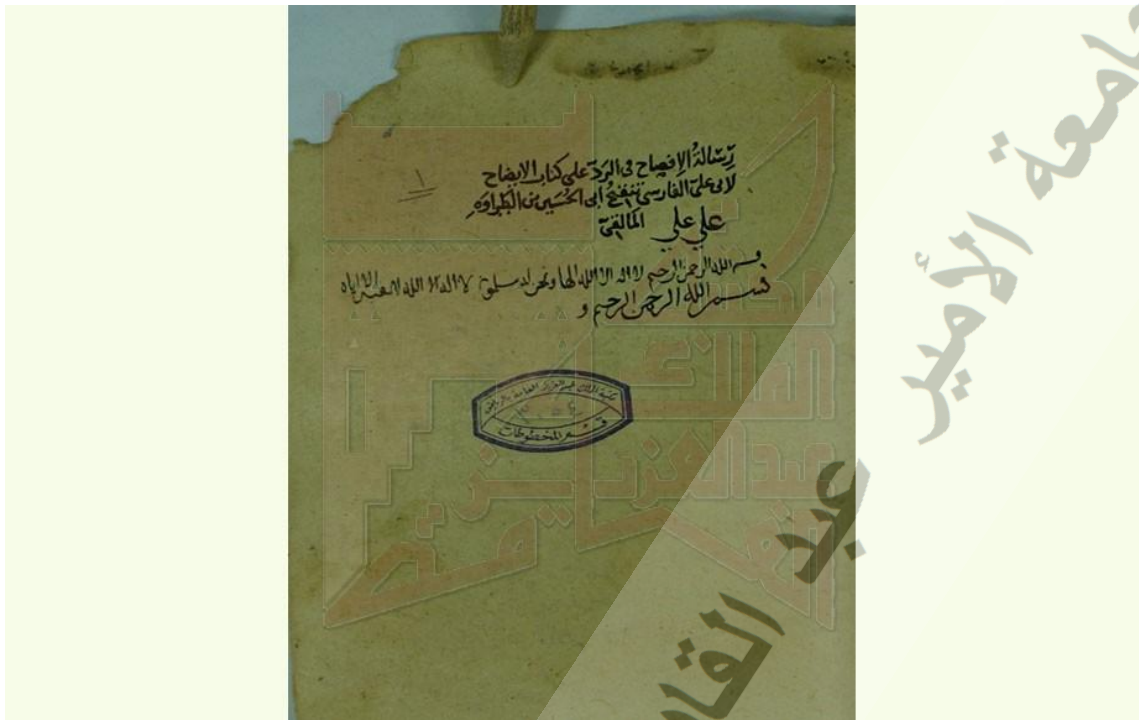 رِسَالةُ الإفصاح في الرَدّ على كتاب الايضاح
لابى على الفارسى تنقيحُ ابى الحُسَين بن الطراوَهِ
علي علي المَالِقىّ
بسم الله الرحمن الرحيم لا اله الا الله الها ونحن له مسلمون لا اله الا الله لا نعبد الا اياه
بسم الله الرحمن الرحيم و
١
مكتبة الملك عبد العزيز العامة بالرياض
قسم المخطوطات
مكتبة
الملك
عبدالعزيز
العامة
جامعة الأمير عبد القا